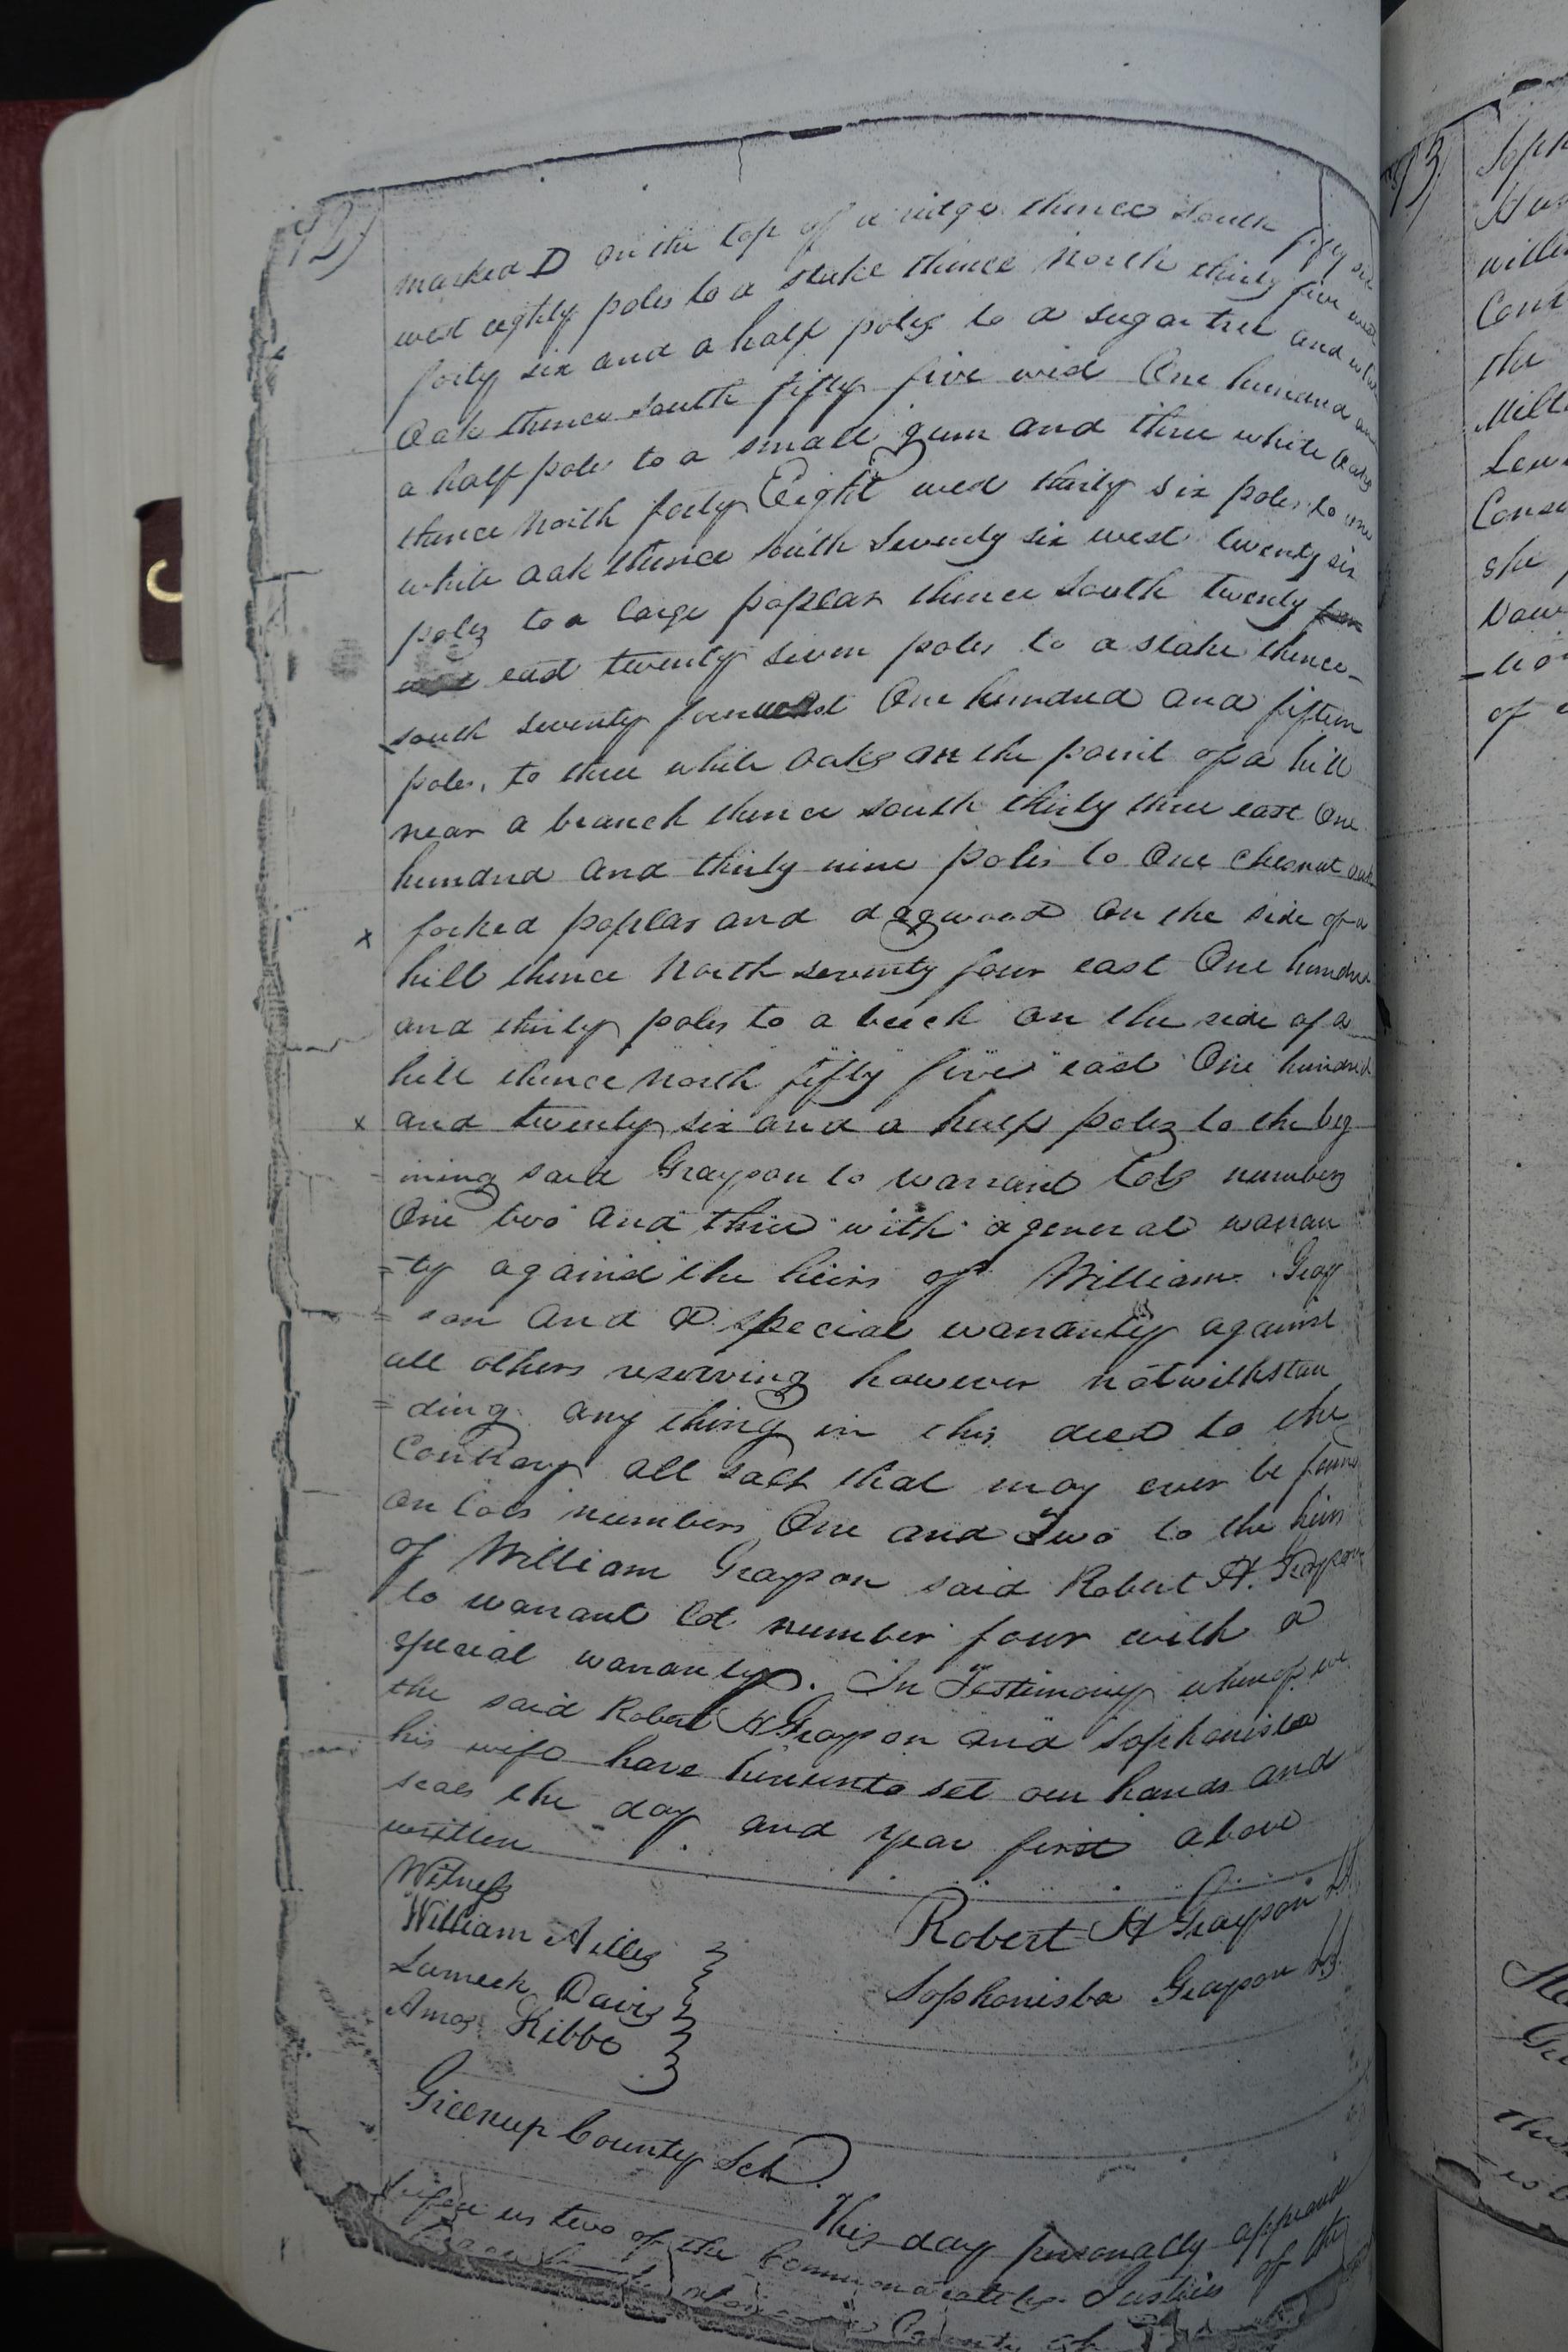 92)
marked D on the top of a ridge thence south fifty six
west eighty poles to a stake thence North thirty five west
forty six and a half poles to a sugar tree and white
Oak thence south fifty five west One hundred and
a half poles to a small gum and three white Oaks
thence North forty Eight west thirty six poles to one
white oak thence south seventy six west twenty six
poles to a large poplar thence south twenty
east twenty seven poles to a stake thence
south seventy four west One hundred and fifteen
poles, to three white oaks on the point of a hill
near a branch thence south thirty three east One
hundred and thirty nine poles to One chesnut oak
x forked poplar and dogwood On the side of a
hill thence North seventy four east One hundred
and thirty poles to a beech on the side of a
hill thence North fifty five east One hundred
x and twenty six and a half poles to the beg
-ining said Grayson to warrant Lots numbers
One two and three with a general warran
=ty against the heirs of William Gray
=son and a special warranty against
all others reserving however notwithstan
=ding any thing in this deed to the
Contrary all salt that may ever be found
on Lots numbers One and Two to the heirs
of William Grayson said Robert H. Grayson
to warrant Lot number four with a
special warranty. In Testimony whereof we
the said Robert H Grayson and Sophonisba
his wife have hereunto set our hands and
seals the day and year first above
written
Witness
William
Lameck Davis
Amos Kibbe
Robert H Grayson LS
Sophonisba Grayson LS
Greenup County Sct
This day personally appeared
before us two of the Commonwealths Justices of the
73)
Soph
the
she
of